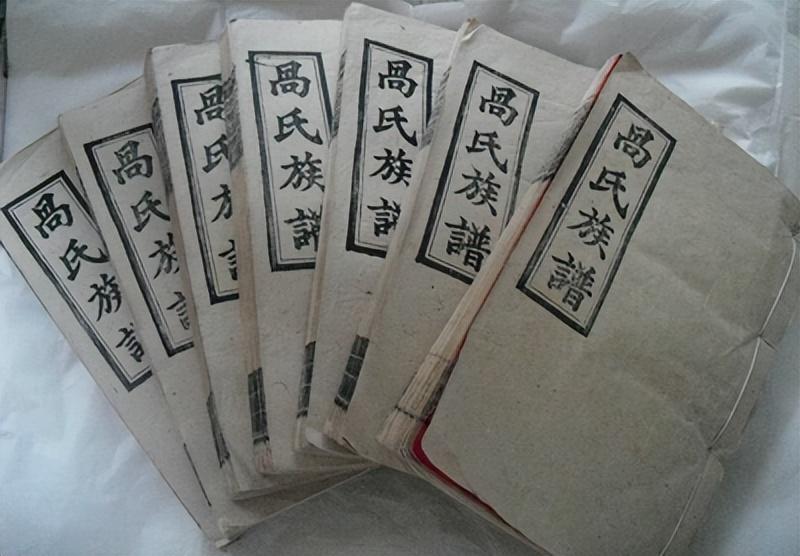 咼氏族譜
咼氏族譜
咼氏族譜
咼氏族譜
咼氏族譜
咼氏族譜
咼氏族譜